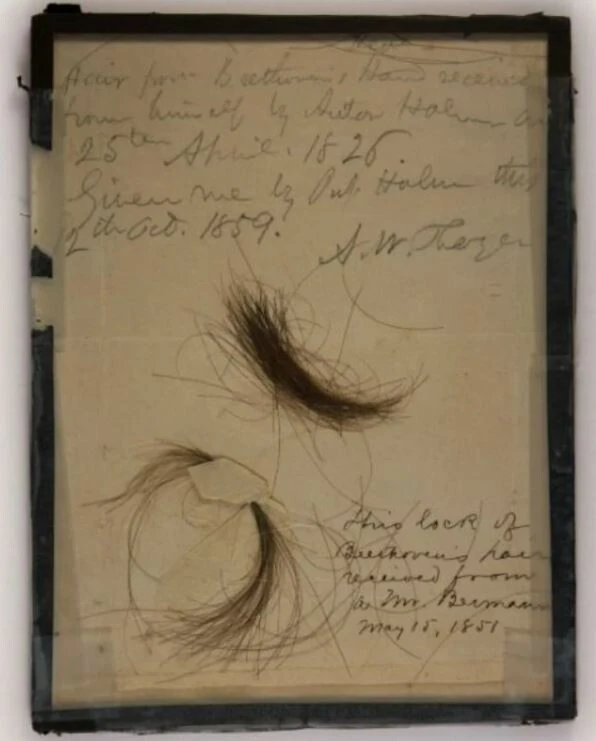 Hair from Beethoven's Head received
from himself by Anton Halm on
25th April. 1826
Given me by Halm this
Oct. 1859.
A. W. Thayer
This lock of
Beethoven's hair
received from
a Mr. Bermann
May 15, 1851